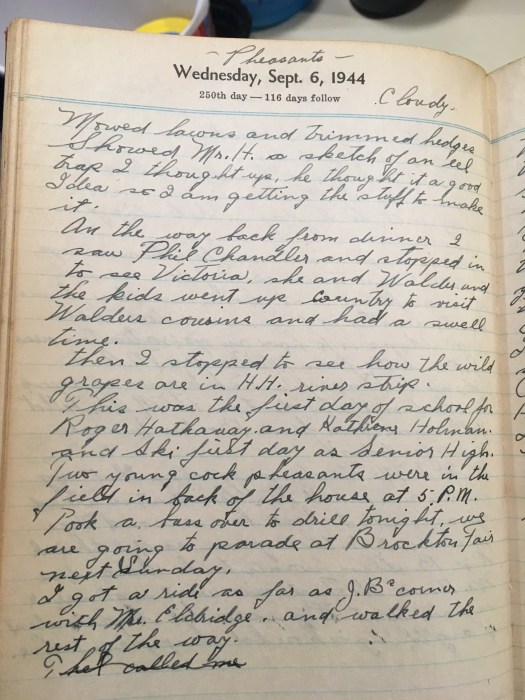 - Pheasants -
Wednesday, Sept. 6, 1944
250th day — 116 days follow
Cloudy.
Mowed lawns and trimmed hedges
Showed Mr. H. a sketch of an eel
trap I thought up, he thought it a good
Idea so I am getting the stuff to make
it.
On the way back from dinner I
saw Phil Chandler and stopped in
to see Victoria, she and Walder and
the kids went up country to visit
Walders cousins and had a swell
time.
then I stopped to see how the wild
grapes are in H.H. river strip.
This was the first day of school for
Roger Hathaway. and Holman.
and Ski first day as Senior High.
Two young cock pheasants were in the
field in back of the house at 5. P.M.
Took a bass over to drill tonight, we
are going to parade at Brockton Fair
next Sunday.
I got a ride as far as J.B.s corner
with Mr. Eldridge. and walked the
rest of the way.
called me